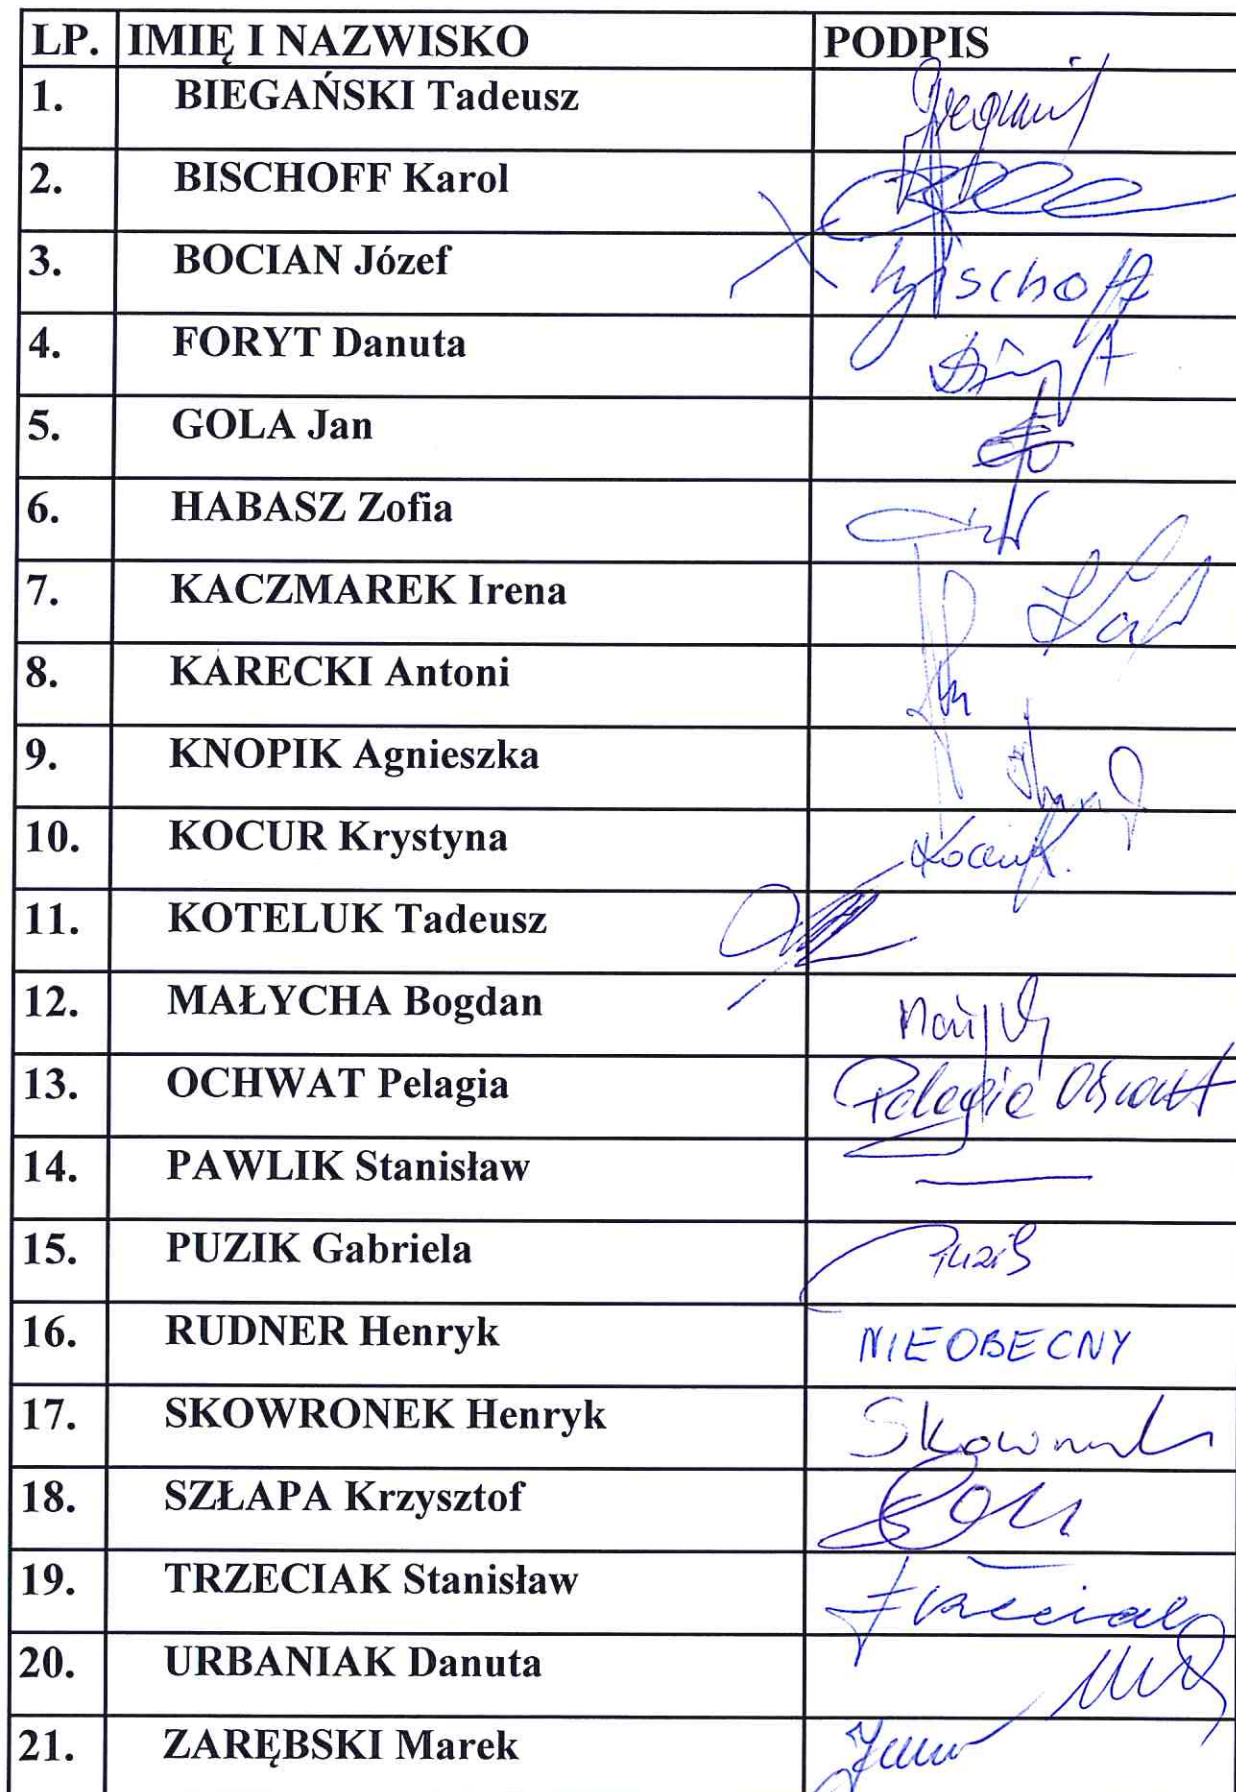 LP. IMIĘ I NAZWISKO PODPIS
1. BIEGAŃSKI Tadeusz
2. BISCHOFF Karol
3. BOCIAN Józef Bischoff
4. FORYT Danuta
5. GOLA Jan
6. HABASZ Zofia
7. KACZMAREK Irena
8. KARECKI Antoni
9. KNOPIK Agnieszka
10. KOCUR Krystyna
11. KOTELUK Tadeusz
12. MAŁYCHA Bogdan
13. OCHWAT Pelagia Pelagia Ochwat
14. PAWLIK Stanisław —
15. PUZIK Gabriela Puzik
16. RUDNER Henryk NIEOBECNY
17. SKOWRONEK Henryk Skowronek
18. SZŁAPA Krzysztof
19. TRZECIAK Stanisław Trzeciak
20. URBANIAK Danuta
21. ZARĘBSKI Marek